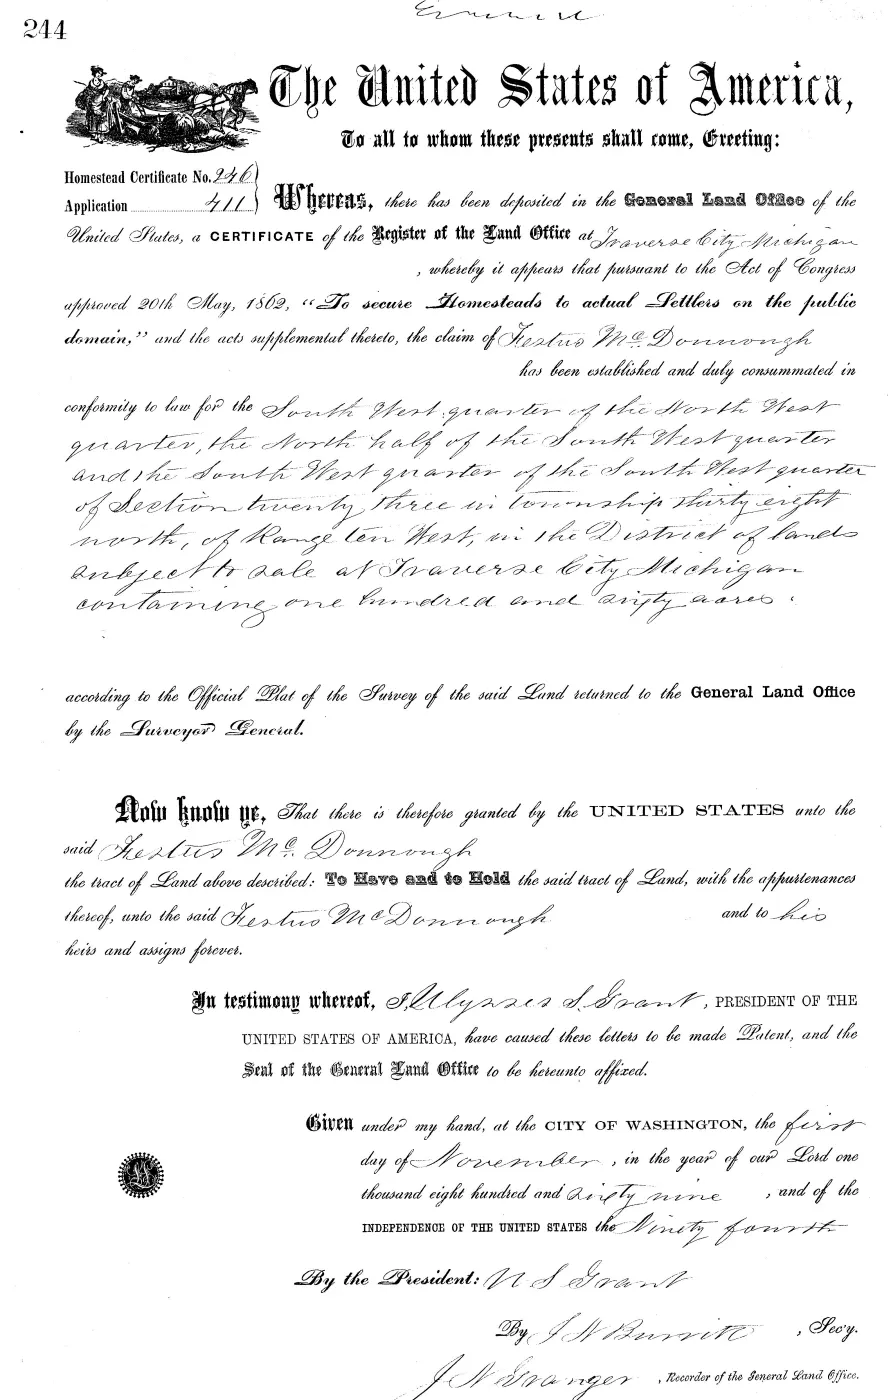 244
The United States of America,
To all to whom these presents shall come, Greeting:
Homestead Certificate No. 246
Application 411
Whereas, there has been deposited in the General Land Office of the
United States, a CERTIFICATE of the Register of the Land Office at Traverse City Michigan
, whereby it appears that pursuant to the Act of Congress
approved 20th May, 1862, "To secure Homesteads to actual Settlers on the public
domain," and the acts supplemental thereto, the claim of Festus McDonnough
has been established and duly consummated in
conformity to law for the South West quarter of the North West
quarter, the North half of the South West quarter
and the South West quarter of the South West quarter
of Section twenty three in township thirty eight
north, of Range ten West, in the District of lands
subject to sale at Traverse City Michigan
containing one hundred and sixty acres.
according to the Official Plat of the Survey of the said Land returned to the General Land Office
by the Surveyor General.
Now know ye, That there is therefore granted by the UNITED STATES unto the
said Festus McDonnough
the tract of Land above described: To Have and to Hold the said tract of Land, with the appurtenances
thereof, unto the said Festus McDonnough and to his
heirs and assigns forever.
In testimony whereof, I, Ulysses S. Grant, PRESIDENT OF THE
UNITED STATES OF AMERICA, have caused these letters to be made Patent, and the
Seal of the General Land Office to be hereunto affixed.
Given under my hand, at the CITY OF WASHINGTON, the first
day of November, in the year of our Lord one
thousand eight hundred and sixty nine, and of the
INDEPENDENCE OF THE UNITED STATES the Ninety fourth
By the President: U S Grant
By , Sec'y.
J N Granger, Recorder of the General Land Office.